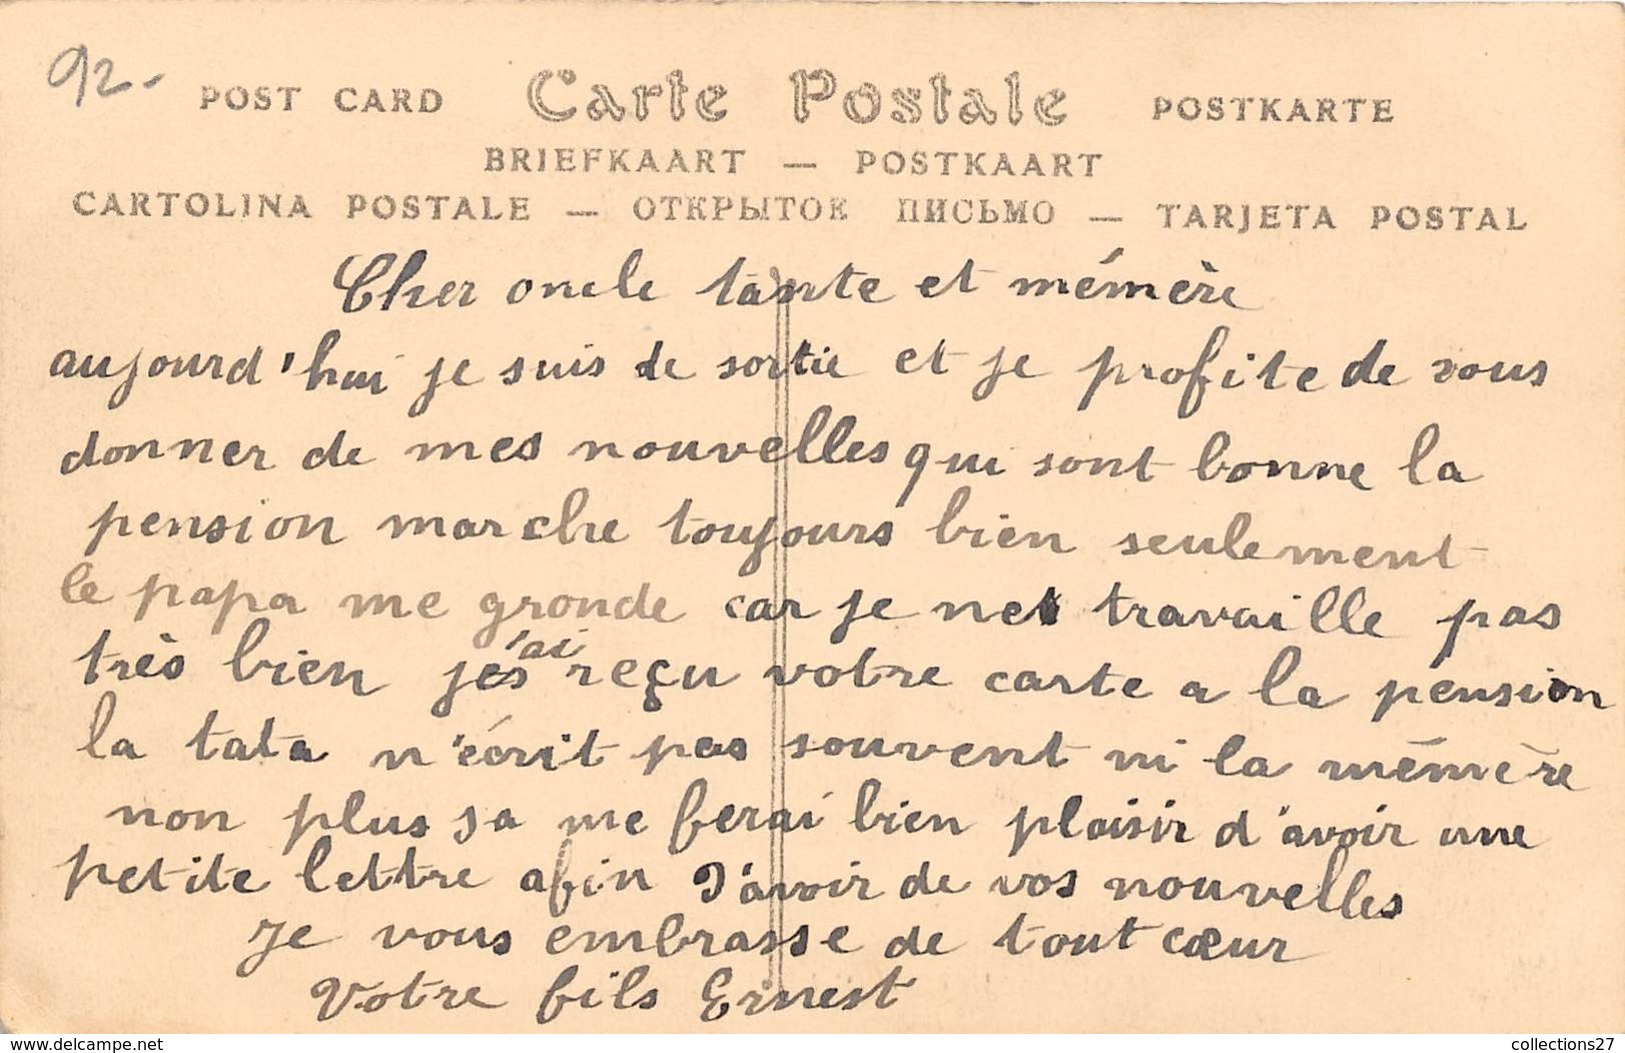 92-
POST CARD Carte Postale POSTKARTE
BRIEFKAART — POSTKAART
CARTOLINA POSTALE — ОТКРЫТОЕ ПИСЬМО — TARJETA POSTAL
Cher oncle tante et mémère
aujourd'hui je suis de sortie et je profite de vous
donner de mes nouvelles qui sont bonne la
pension marche toujours bien seulement
le papa me gronde car je ne travaille pas
très bien j'ai reçu votre carte a la pension
la tata n'écrit pas souvent ni la mémère
non plus sa me ferai bien plaisir d'avoir une
petite lettre afin d'avoir de vos nouvelles
Je vous embrasse de tout cœur
Votre fils Ernest
www.delcampe.net
collections27